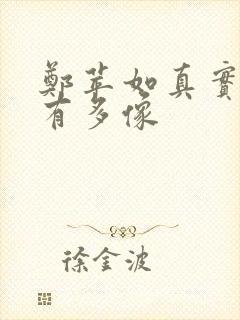 鄭苹如真實
有多像
徐金波